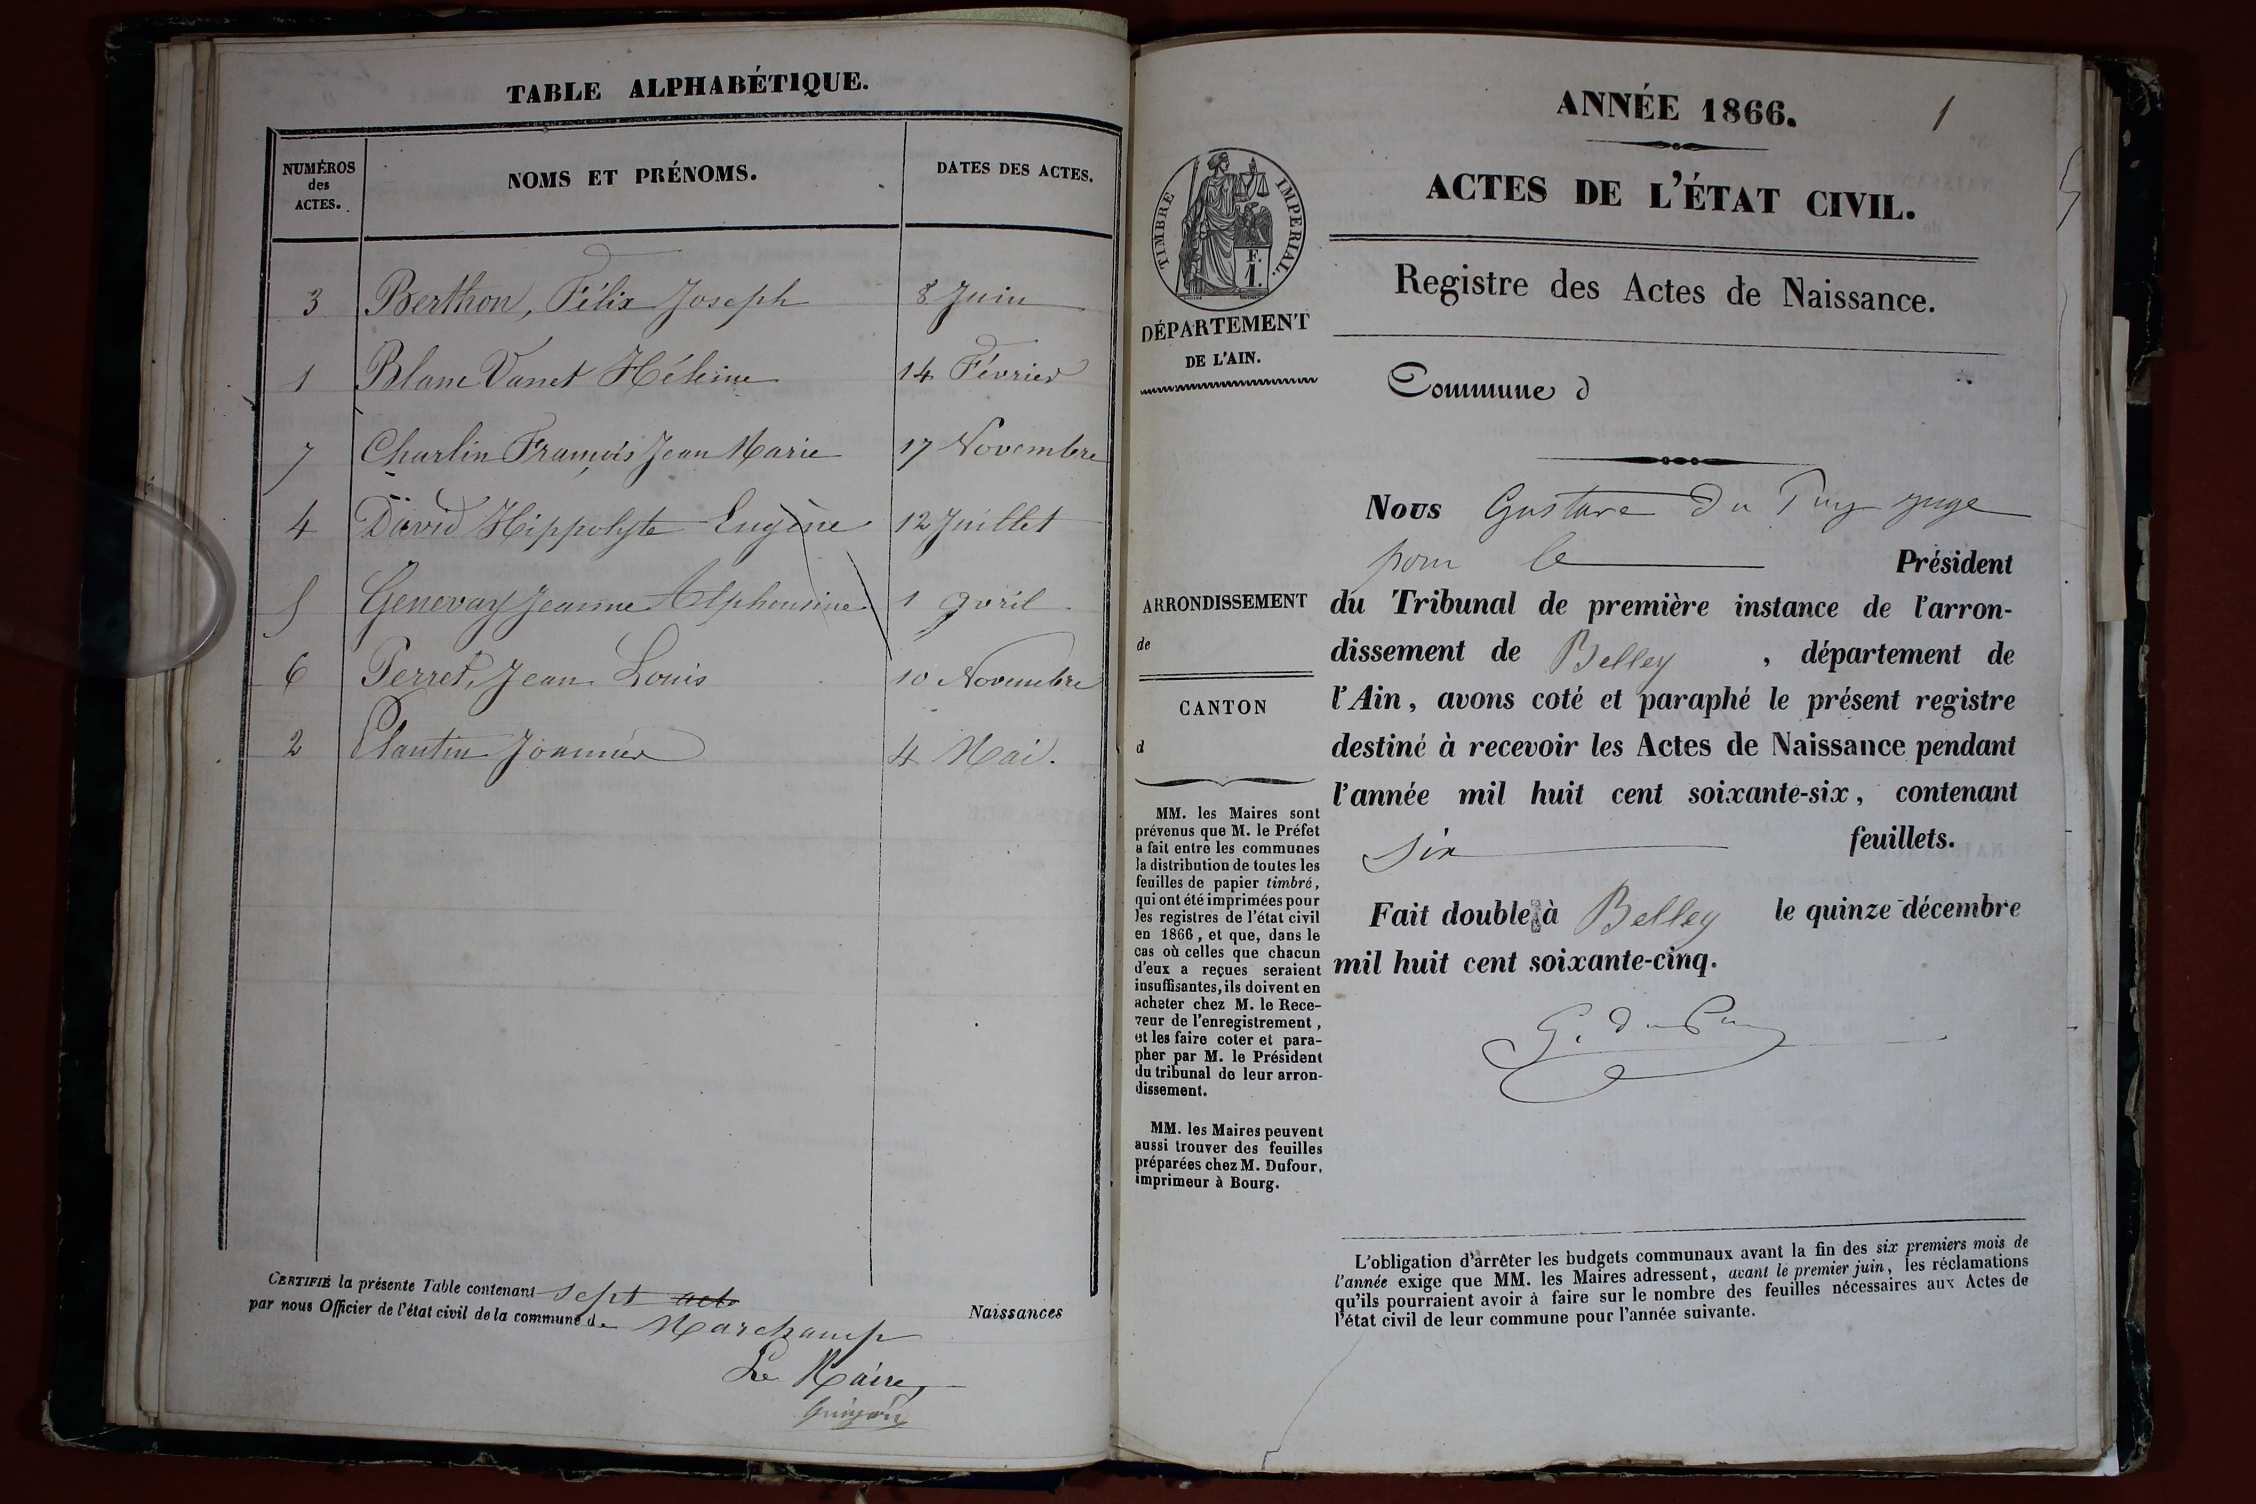 TABLE ALPHABÉTIQUE.
NUMÉROS des ACTES.
NOMS ET PRÉNOMS.
DATES DES ACTES.
3 Berthon, Félix Joseph 8 Juin
1 Blanc Vanet Hélène 14 Février
7 Charlin François Jean Marie 17 Novembre
4 David Hippolyte Eugène 12 Juillet
5 Genevay Jeanne Alphonsine 1 Avril
6 Perret, Jean Louis 10 Novembre
2 Plantin Joannès 4 Mai.
CERTIFIÉ la présente Table contenant sept acte Naissances
par nous Officier de l'état civil de la commune de Marchamp
Le Maire,
ANNÉE 1866.
1
ACTES DE L'ÉTAT CIVIL.
TIMBRE IMPERIAL.
F.
1.
Registre des Actes de Naissance.
DÉPARTEMENT
DE L'AIN.
Commune d
Nous Gustave Du Puy juge
pour le Président
du Tribunal de première instance de l'arron-
dissement de Belley, département de
l'Ain, avons coté et paraphé le présent registre
destiné à recevoir les Actes de Naissance pendant
l'année mil huit cent soixante-six, contenant
six feuillets.
Fait double à Belley le quinze décembre
mil huit cent soixante-cinq.
G. du Puy
ARRONDISSEMENT
de
CANTON
d
MM. les Maires sont
prévenus que M. le Préfet
a fait entre les communes
la distribution de toutes les
feuilles de papier timbré,
qui ont été imprimées pour
les registres de l'état civil
en 1866, et que, dans le
cas où celles que chacun
d'eux a reçues seraient
insuffisantes, ils doivent en
acheter chez M. le Rece-
veur de l'enregistrement,
et les faire coter et para-
pher par M. le Président
du tribunal de leur arron-
dissement.
MM. les Maires peuvent
aussi trouver des feuilles
préparées chez M. Dufour,
imprimeur à Bourg.
L'obligation d'arrêter les budgets communaux avant la fin des six premiers mois de
l'année exige que MM. les Maires adressent, avant le premier juin, les réclamations
qu'ils pourraient avoir à faire sur le nombre des feuilles nécessaires aux Actes de
l'état civil de leur commune pour l'année suivante.